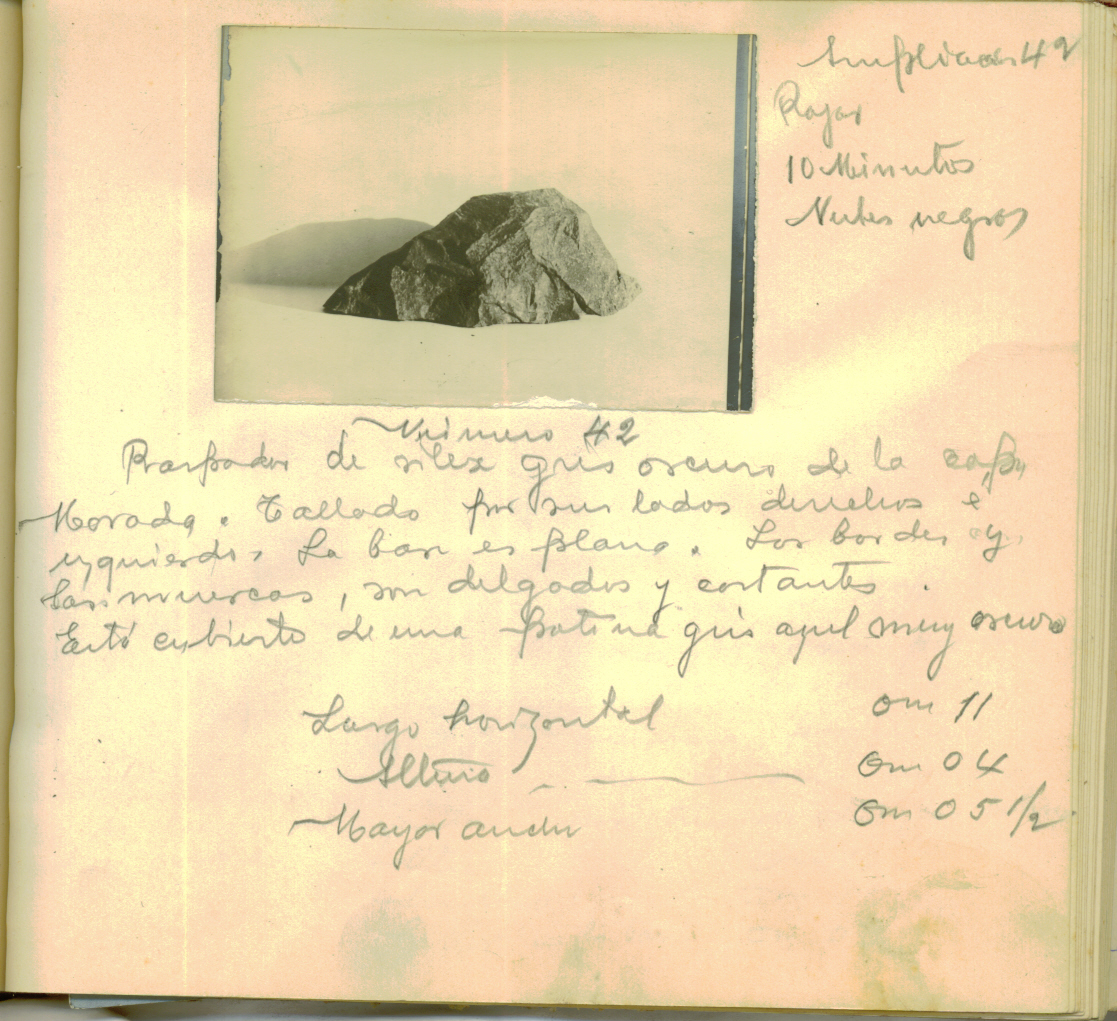 Ampliación 42
Rojas
10 Minutos
Nubes negras
Número 42
Raspador de silex gris oscuro de la capa
Morada. Tallado por sus lados derecho e
izquierdo. La base es plana. Los bordes y
las muescas, son delgados y cortantes.
Está cubierto de una patina gris azul muy oscuro
Largo horizontal 0m 11
Altura 0m 04
Mayor ancho 0m 05 1/2